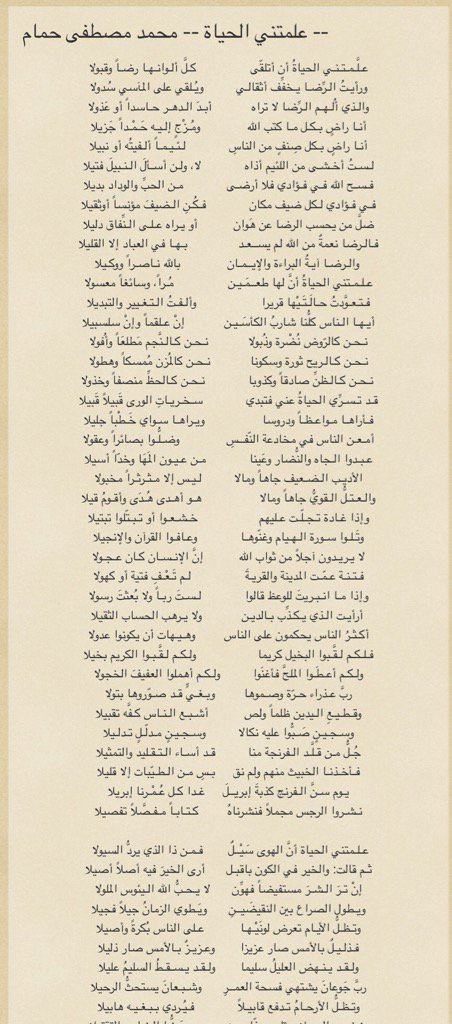 -- علمتني الحياة -- محمد مصطفى حمام
علَّمتني الحياةُ أن أتلقّى كلَّ ألوانها رضاً وقبولا
ورأيتُ الرِّضا يخفِّف أثقالي ويُلقي على المآسي سُدولا
والذي أُلهم الرِّضا لا تراه أبدَ الدهر حاسداً أو عَذولا
أنا راضٍ بكل ما كتب الله ومُزْجٍ إليه حَمْداً جَزيلا
أنا راضٍ بكل صِنفٍ من الناسِ لئيماً ألفيتُه أو نبيلا
لستُ أخشى من اللئيم أذاه لا، ولن أسألَ النبيلَ فتيلا
فسح الله في فؤادي فلا أرضى من الحبِّ والوداد بديلا
في فؤادي لكل ضيف مكان فكُنِ الضيفَ مؤنساً أوثقيلا
ضلَّ من يحسب الرضا عن هَوان أو يراه على النِّفاق دليلا
فالرضا نعمةٌ من الله لم يسعد بها في العباد إلا القليلا
والرضا آيةُ البراءة والإيمان بالله ناصراً ووكيلا
علمتني الحياةُ أنَّ لها طعمَين مُراً، وسائغاً معسولا
فتعوَّدتُ حالَتَيْها قريرا وألفتُ التغيير والتبديلا
أيها الناس كلُّنا شاربُ الكأسَين إنْ علقماً وإنْ سلسبيلا
نحن كالرّوض نُضْرة وذُبولا نحن كالنَّجم مَطلعَاً وأُفولا
نحن كالريح ثورة وسكونا نحن كالمُزن مُمسكاً وهطولا
نحن كالظنِّ صادقاً وكذوبا نحن كالحظِّ منصفاً وخذولا
قد تسرِّي الحياةُ عني فتبدي سخرياتِ الورى قَبيلاً قَبيلا
فأراها مواعظاً ودروسا ويراها سواي خَطْباً جليلا
أمعن الناس في مخادعة النّفسِ وضلُّوا بصائراً وعقولا
عبدوا الجاه والنُّضار وعَينا من عيون المَهَا وخدّاً أسيلا
الأديب الضعيف جاهاً ومالا ليس إلا مثرثراً مخبولا
والعتلُّ القويُّ جاهاً ومالا هو أهدى هُدَى وأقومُ قيلا
وإذا غادة تجلّت عليهم خشعوا أو تبتّلوا تبتيلا
وتَلوا سورة الهيام وغنّوها وعافوا القرآن والإنجيلا
لا يريدون آجلاً من ثواب الله إنَّ الإنسان كان عجولا
فتنة عمّت المدينة والقريةَ لم تَعْفِ فتية أو كهولا
وإذا ما انبريتَ للوعظ قالوا لستَ رباً ولا بُعثتَ رسولا
أرأيت الذي يكذِّب بالدين ولا يرهب الحساب الثقيلا
أكثرُ الناس يحكمون على الناس وهيهات أن يكونوا عدولا
فلكم لقَّبوا البخيل كريما ولكم لقَّبوا الكريم بخيلا
ولكم أعطَوا الملحَّ فأغنَوا ولكم أهملوا العفيفَ الخجولا
ربَّ عذراء حرّة وصموها وبغيٍّ قد صوّروها بتولا
وقطيعِ اليدين ظلماً ولص أشبع الناس كفَّه تقبيلا
وسجينٍ صَبُّوا عليه نكالا وسجينٍ مدلّلٍ تدليلا
جُلُّ من قلَّد الفرنجة منا قد أساء التقليد والتمثيلا
فأخذنا الخبيث منهم ولم نق بسِ من الطيّبات إلا قليلا
يوم سنَّ الفرنج كذبةَ إبريلَ غدا كل عُمْرنا إبريلا
نشروا الرجس مجملاً فنشرناهُ كتاباً مفصَّلاً تفصيلا
علمتني الحياة أنَّ الهوى سَيْلٌ فمن ذا الذي يردُّ السيولا
ثم قالت: والخير في الكون باقبل أرى الخيرَ فيه أصلاً أصيلا
إنْ ترَ الشرَ مستفيضاً فهوِّن لا يحبُّ الله اليئوس الملولا
ويطول الصراع بين النقيضَينِ ويَطوي الزمانُ جيلاً فجيلا
وتظلُّ الأيام تعرض لونَيْها على الناس بُكرةً وأصيلا
فذليلٌ بالأمس صار عزيزا وعزيزٌ بالأمس صار ذليلا
ولقد ينهض العليلُ سليما ولقد يسقطُ السليمُ عليلا
ربَّ جَوعانَ يشتهي فسحة العمرِ وشبعانَ يستحثُّ الرحيلا
وتظلُّ الأرحامُ تدفع قابيلاً فيُردي ببغيه هابيلا